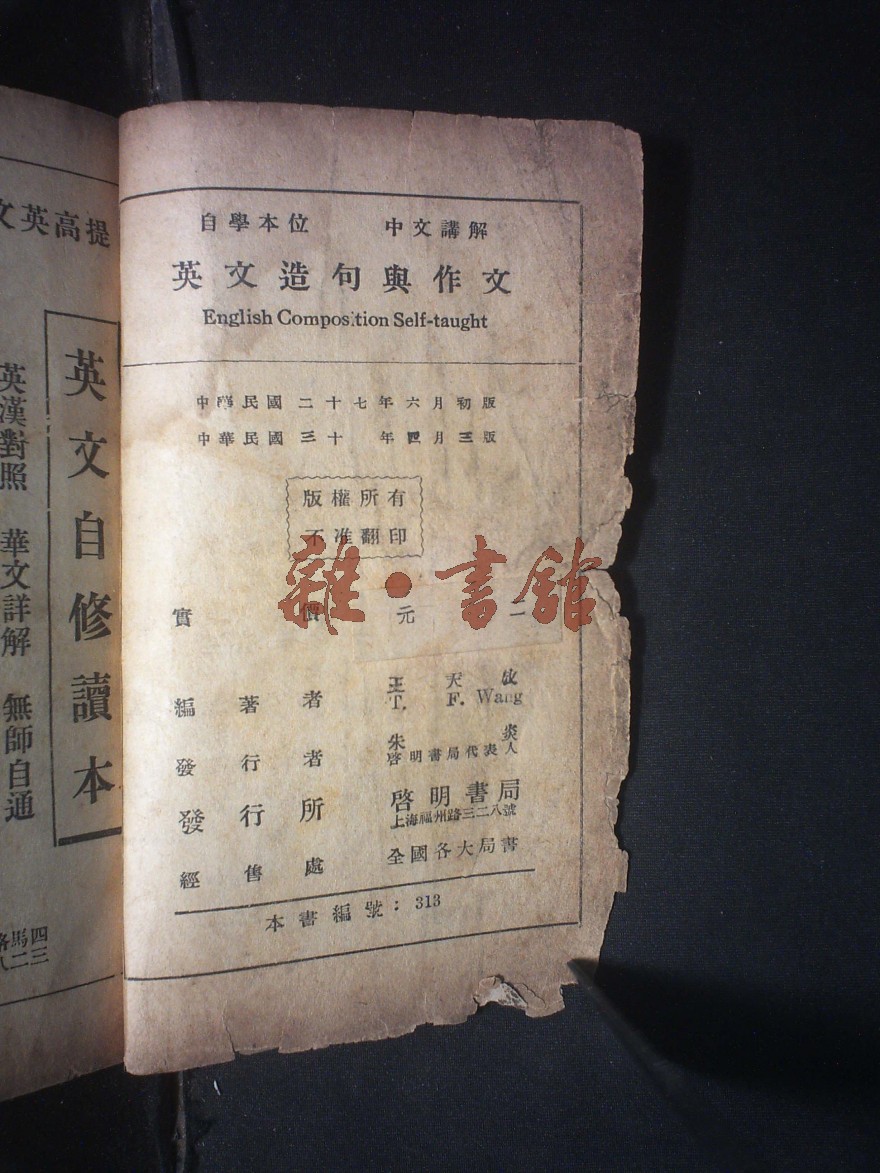 自學本位 中文講解
英文造句與作文
English Composition Self-taught
中華民國二十七年六月初版
中華民國三十 年四月三版
版權所有
不准翻印
實價元二
編著者 王天放
T. F. Wang
發行者 朱炎
啓明書局代表人
發行所 啓明書局
上海福州路三二八號
經售處 全國各大局書
本書編號：313
雜·書館
文英高提
英文自修讀本
英漢對照 華文詳解 無師自通
路馬四
八二三